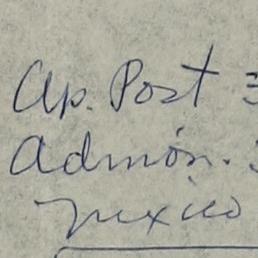 Ap. Post
Admón.
Mexico